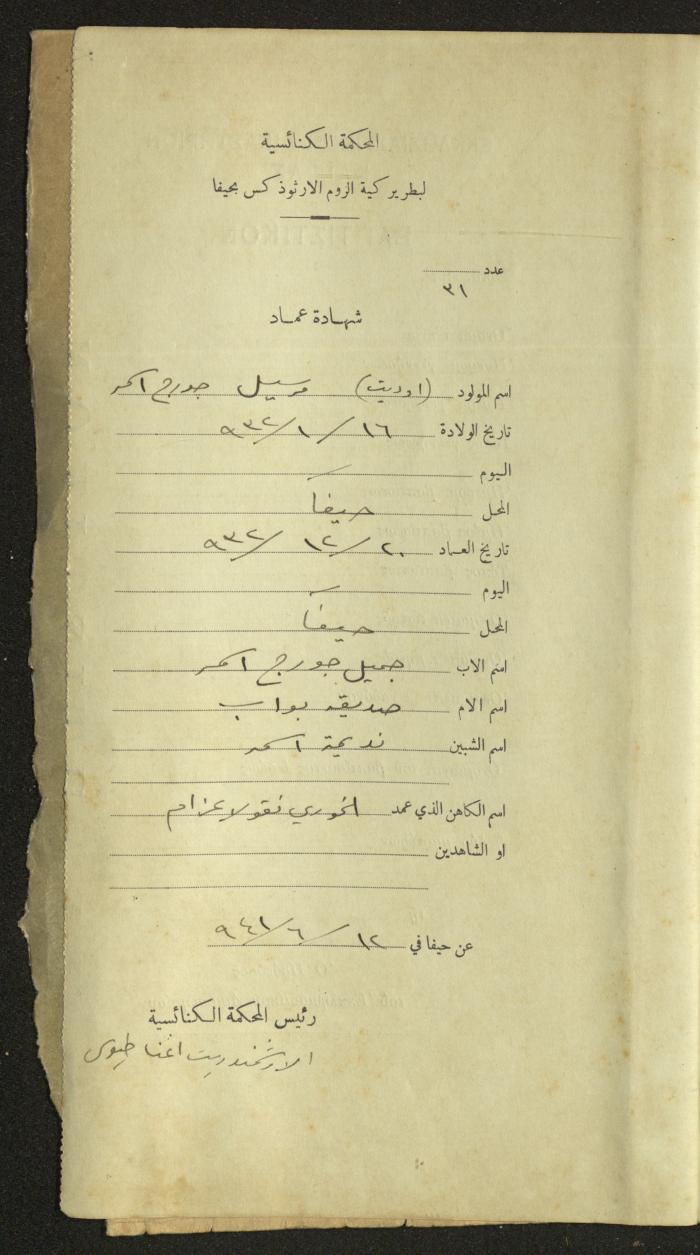 المحكمة الكنائسية
لبطريركية الروم الارثوذكس بحيفا
عدد
٣١
شهادة عماد
اسم المولود (اوديت) مرسيل جورج اسمر
تاريخ الولادة ١٦/١/٩٣٢
اليوم
المحل حيفا
تاريخ العماد ٢٠/١٢/٩٣٢
اليوم
المحل حيفا
اسم الاب جميل جورج اسمر
اسم الام صديقه بواب
اسم الشبين نديمة اسمر
اسم الكاهن الذي عمد الخوري نقولا عزام
او الشاهدين
عن حيفا في ١٢/٦/٩٤١
رئيس المحكمة الكنائسية
الارشمندريت